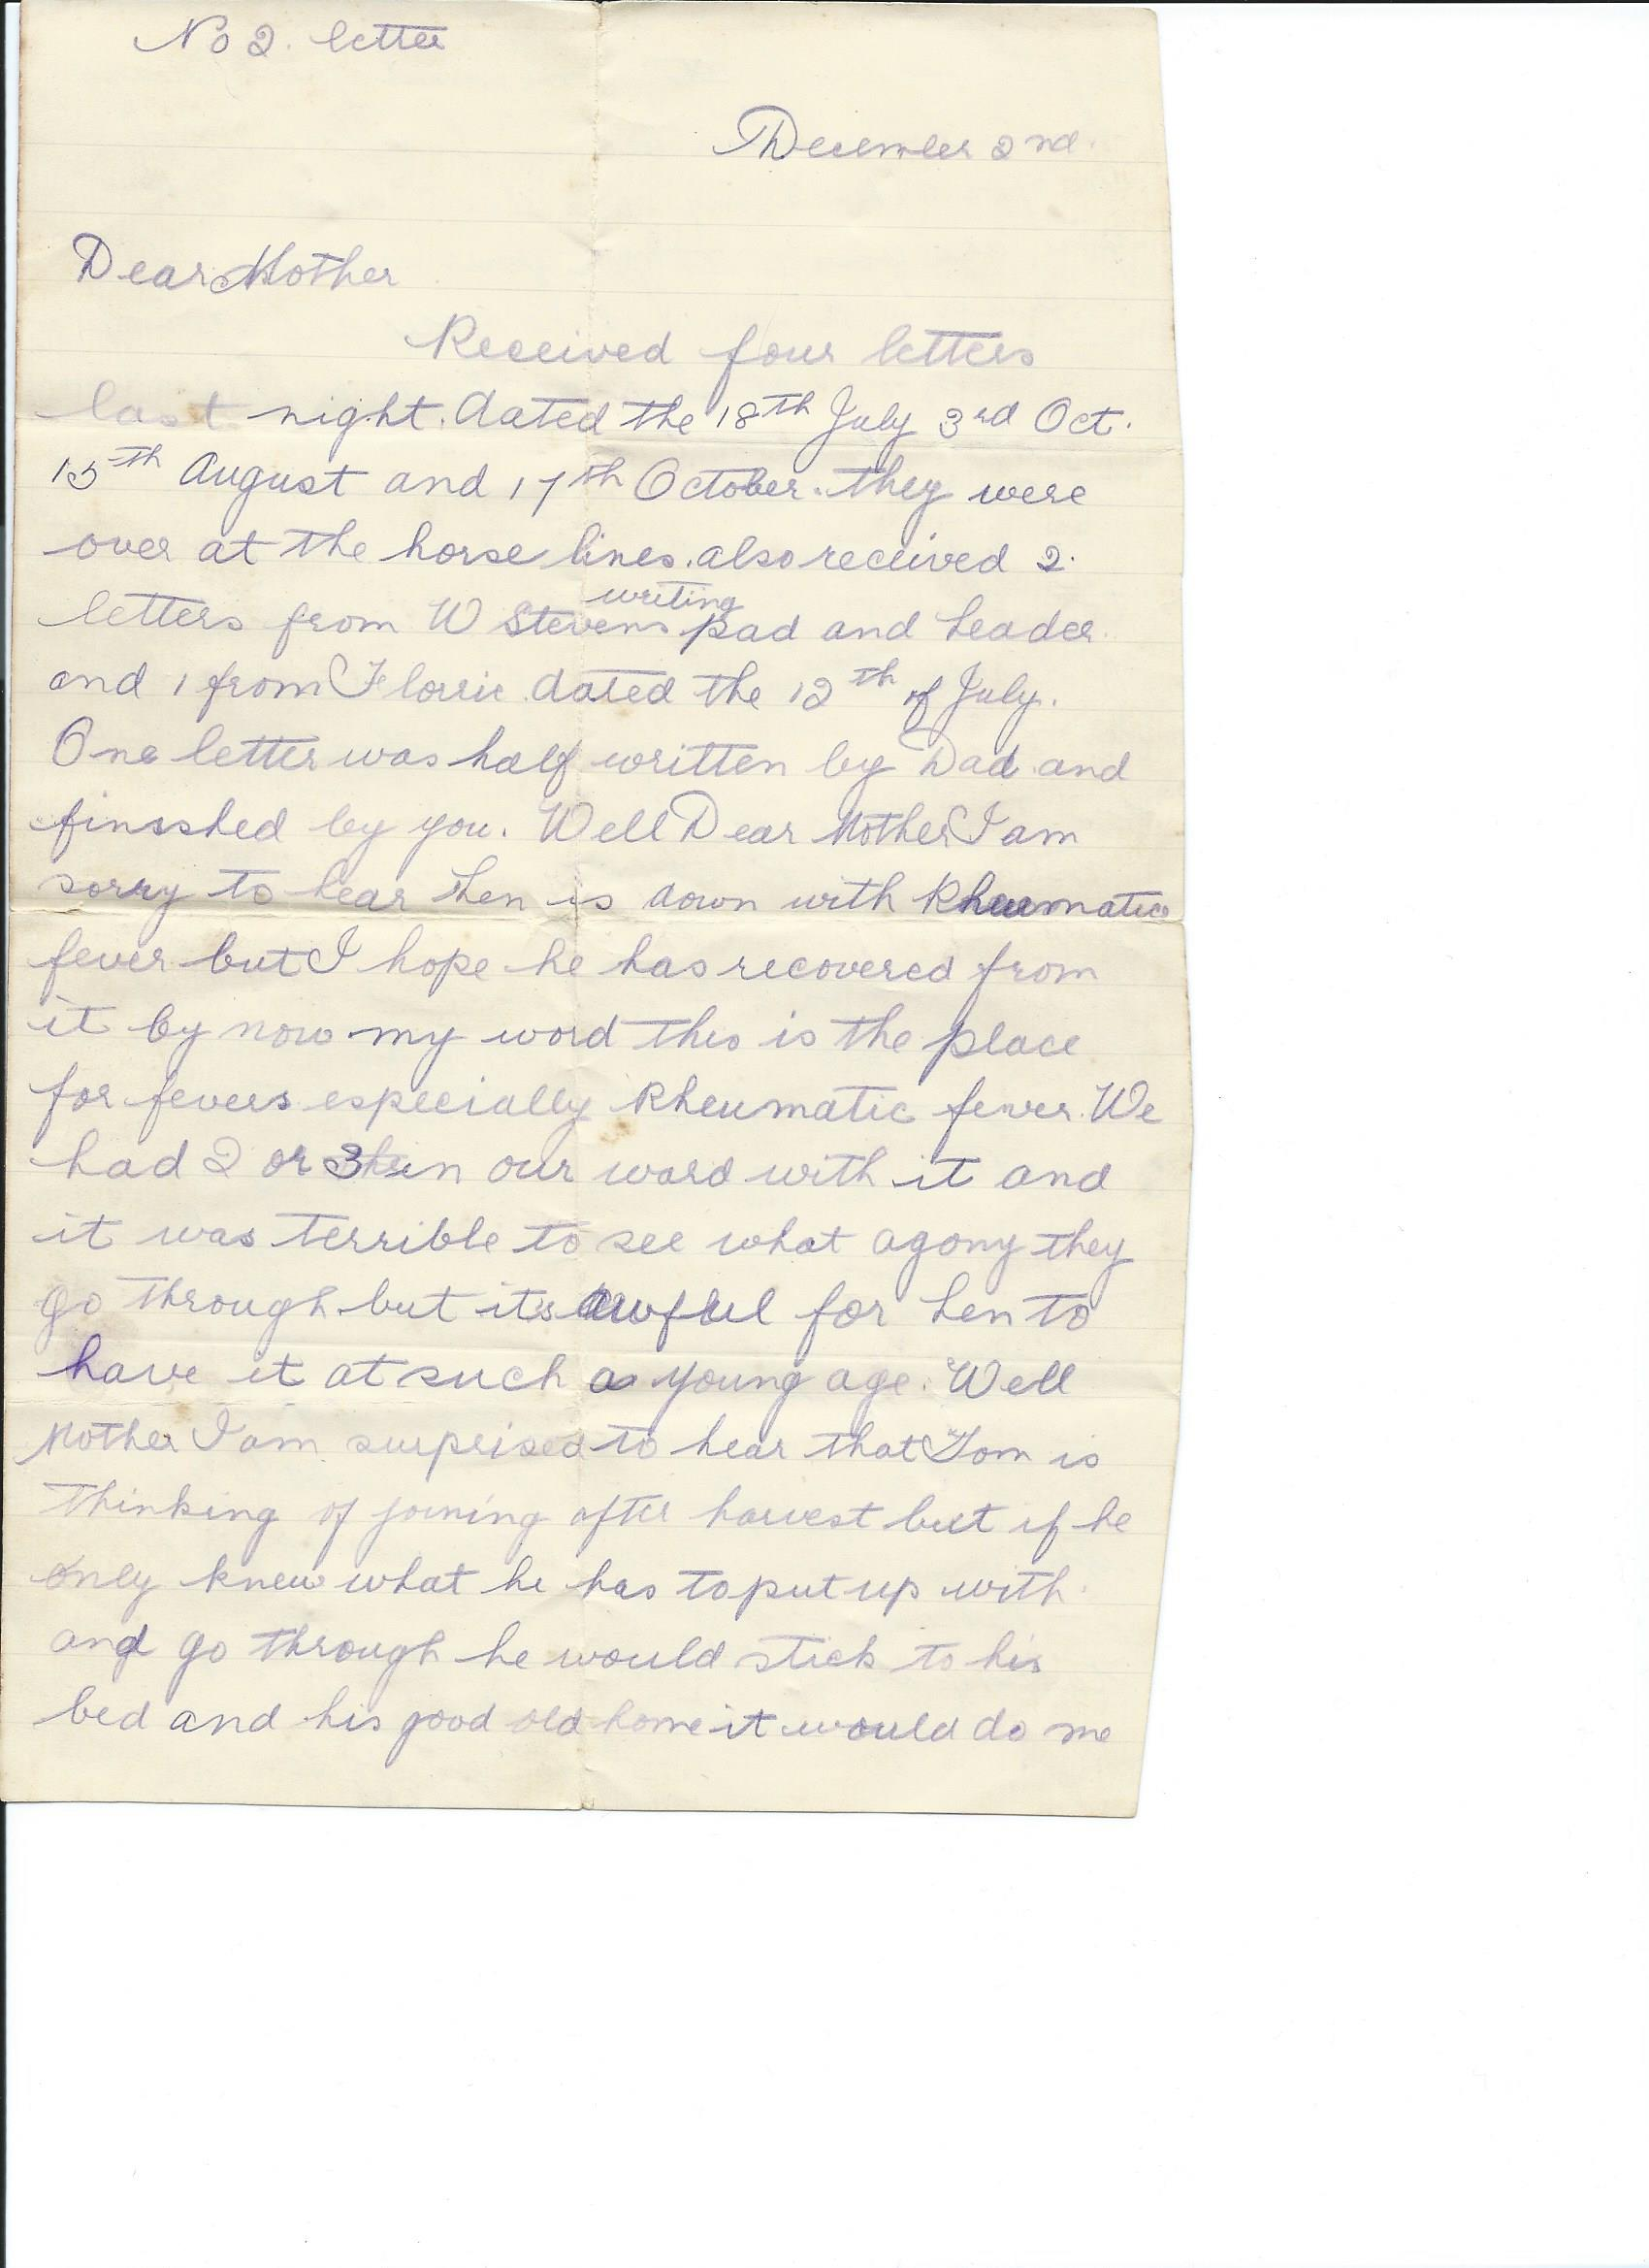 No 2. letter
December 2nd.
Dear Mother
Received four letters
last night. dated the 18th July 3rd Oct.
15th August and 17th October. they were
over at the horse lines. also received 2.
letters from W Stevens writing pad and Leader.
and 1 from Florrie dated the 12th of July.
One letter was half written by Dad and
finsshed by you. Well Dear Mother I am
sorry to hear Len is down with Rheumatic
fever but I hope he has recovered from
it by now my word this is the place
for fevers especially Rheumatic fever. We
had 2 or 3 in our ward with it and
it was terrible to see what agony they
go through but its awful for Len to
have it at such a young age. Well
Mother I am surprised to hear that Tom is
thinking of joining after harvest but if he
only knew what he has to put up with
and go through he would stick to his
bed and his good old home it would do me